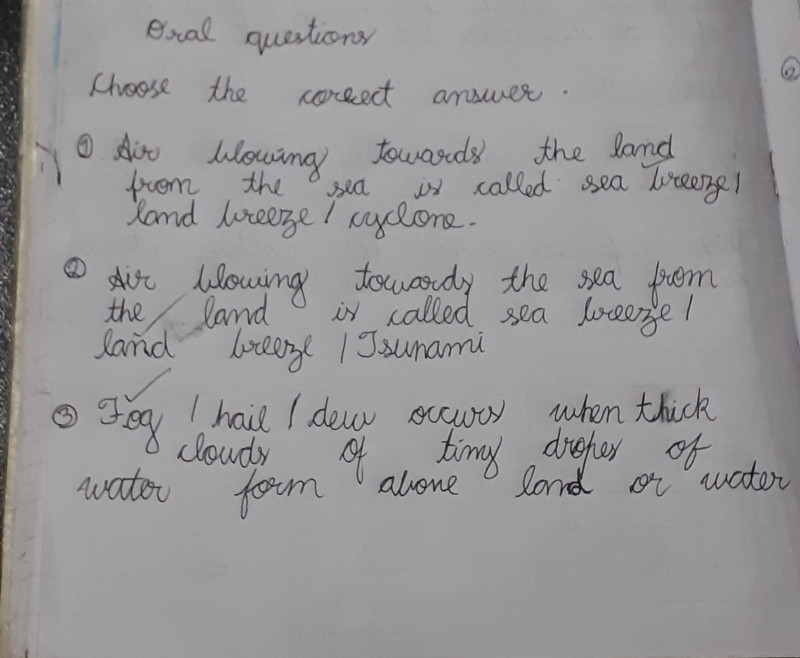 Oral questions
Choose the correct answer.
① Air blowing towards the land
from the sea is called sea breeze/
land breeze / cyclone.
② Air blowing towards the sea from
the land is called sea breeze/
land breeze / Tsunami
③ Fog / hail / dew occurs when thick
clouds of tiny dropes of
water form above land or water
②